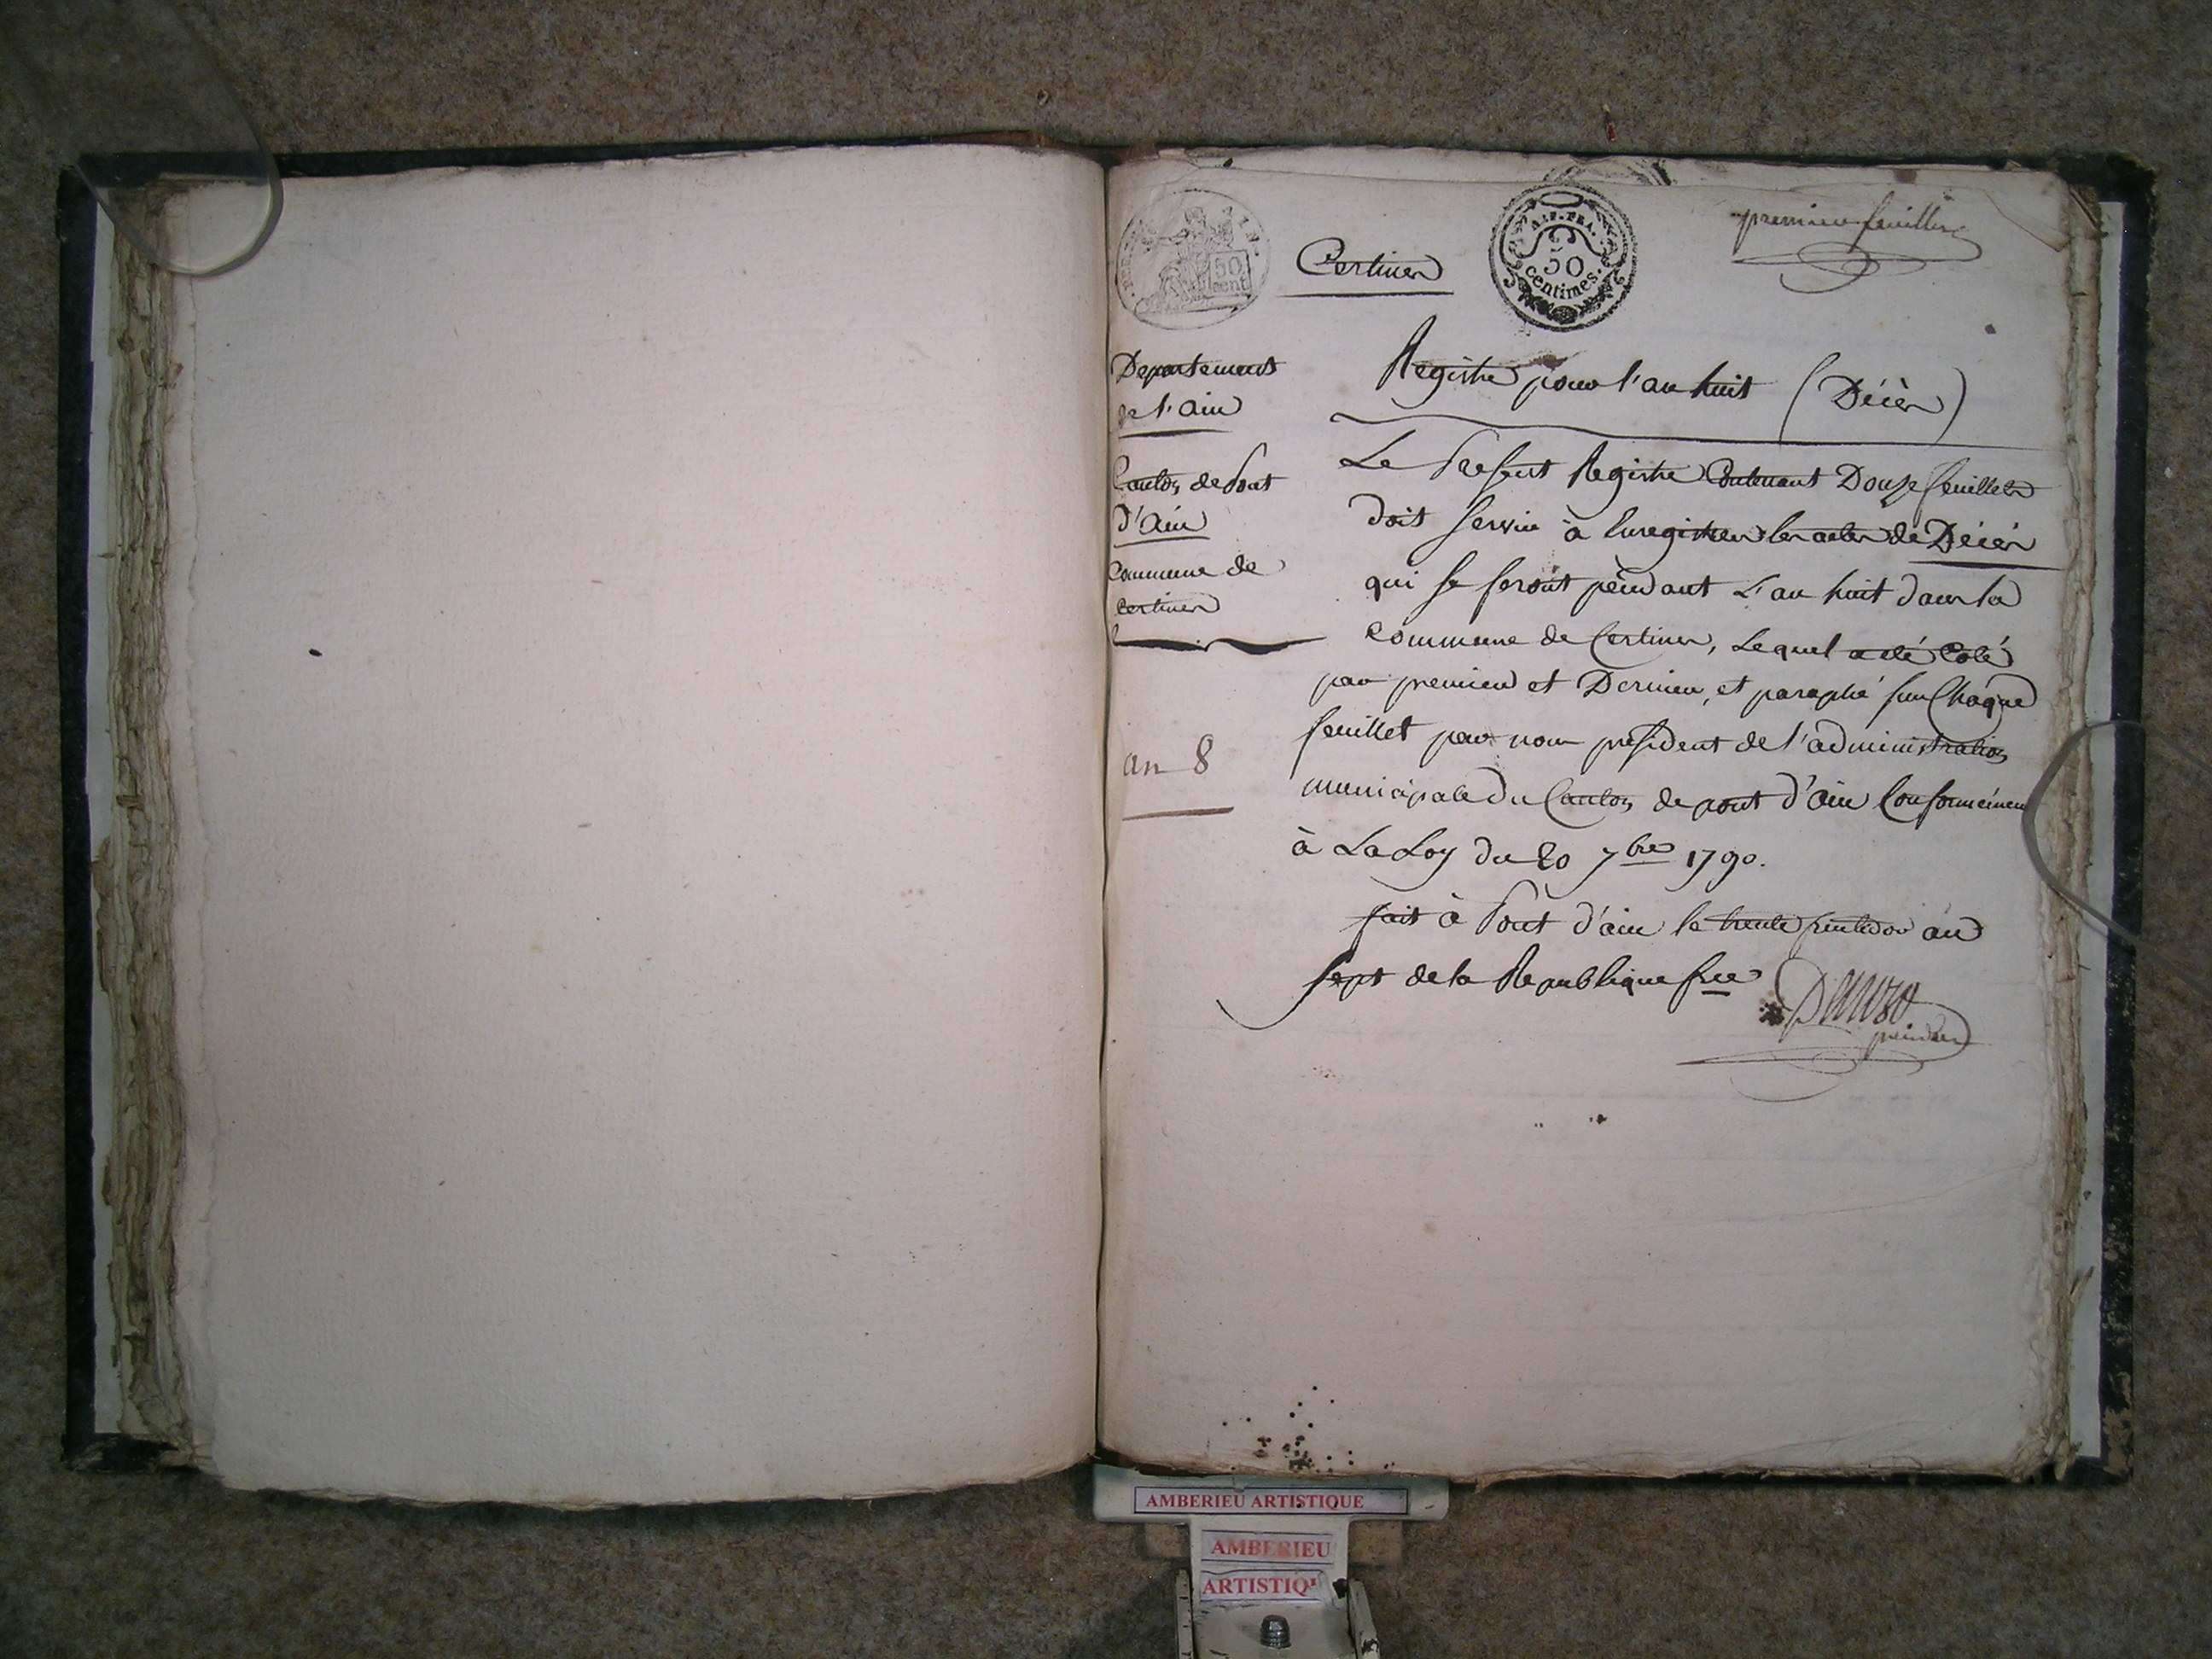 premier feuillet
Certines
50
cent
A:P.FRA.
50
centimes.
Departement
de l'ain
Canton de Pont
d'ain
Commune de
Certines
an 8
Registre pour l'an huit (Décès)
Le Present Registre Contenant Douze feuillets
doit servir à Enregistrer les actes de Décès
qui se feront pendant L'an huit dans la
Commune de Certines, Lequel a été Coté
par premier et Dernier, et paraphé sur Chaque
feuillet par nous président de l'administration
municipale Du Canton de pont d'ain Conformémen
à La Loy du 20 7bre 1790.
fait à Pont d'ain le trente fructidor an
sept de la Republique frse
AMBERIEU ARTISTIQUE
AMBERIEU
ARTISTIQ